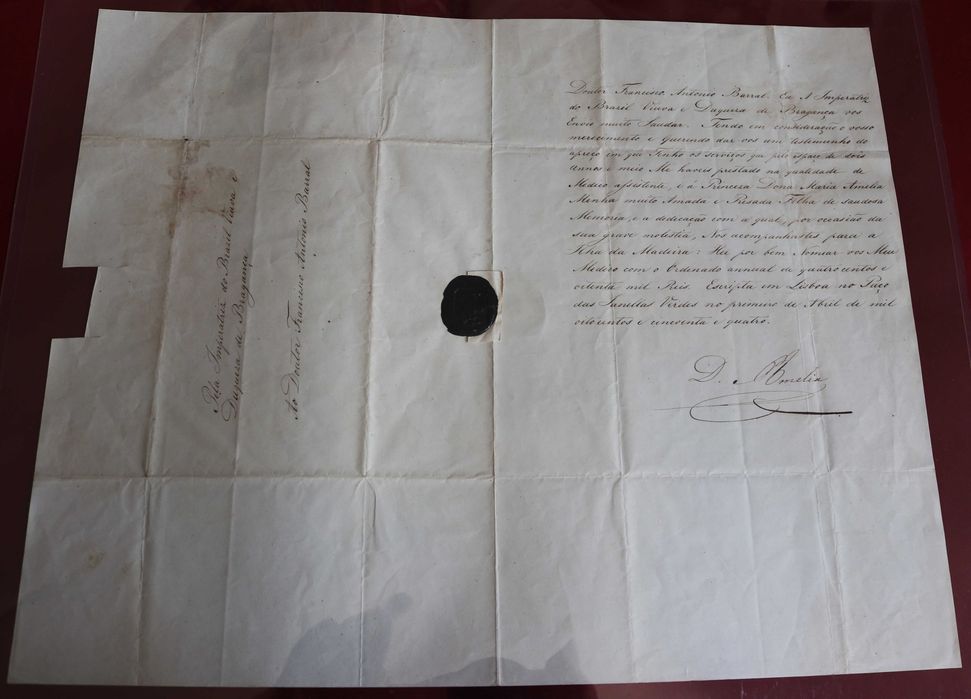 Doutor Francisco Antonio Barral. Eu A Imperatriz
do Brazil Viuva e Duqueza de Bragança vos
Envio muito Saudar. Tendo em consideração o vosso
merecimento e Querendo dar vos um testemunho do
apreço em que Tenho os serviços que pelo espaço de dois
annos e meio Me haveis prestado na qualidade de
Medico assistente, e á Princeza Dona Maria Amelia
Minha muito Amada e Presada Filha de saudosa
Memoria, e a dedicação com a qual, por occasião da
sua grave molestia, Nos acompanhastes para a
Ilha da Madeira: Hei por bem Nomear vos Meu
Medico com o Ordenado annual de quatrocentos e
oitenta mil Reis. Escripta em Lisboa no Paço
das Janellas Verdes no primeiro de Abril de mil
oitocentos e cincoenta e quatro.
D. Amelia
Pela Imperatriz do Brazil Viuva e
Duqueza de Bragança
Ao Doutor Francisco Antonio Barral